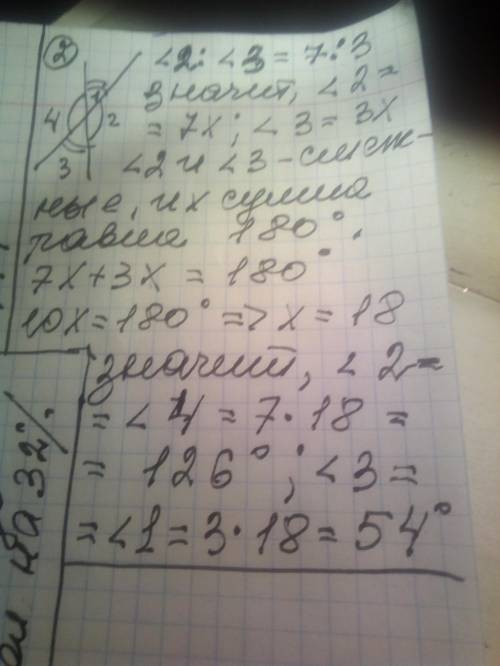 2
∠2:∠3=7:3
1
значит, ∠2=
4
2
=7x; ∠3=3x
3
∠2 и ∠3-смеж-
ные, их сумма
равна 180°.
7x+3x=180°
10x=180°=>x=18
значит, ∠2=
=∠4=7·18=
=126°; ∠3=
=∠1=3·18=54°
на 32%